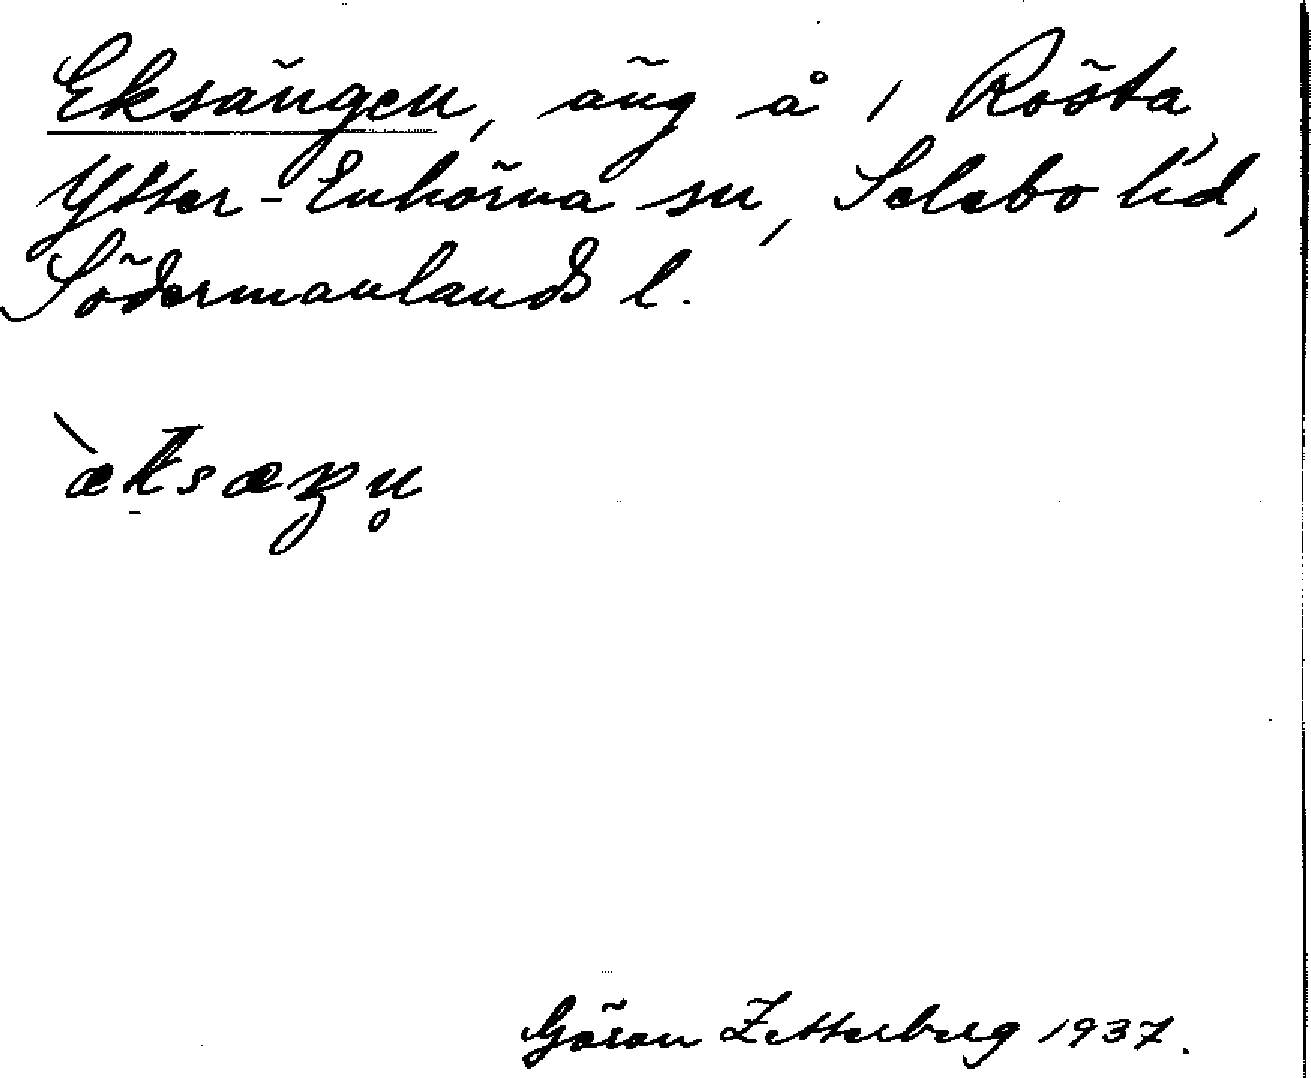 Eksängen, äng å 1 Rösta,
Ytter-Enhörna sn, Selebo hd,
Södermanlands l.
`æksæŋn̥
Göran Zetterberg 1937.